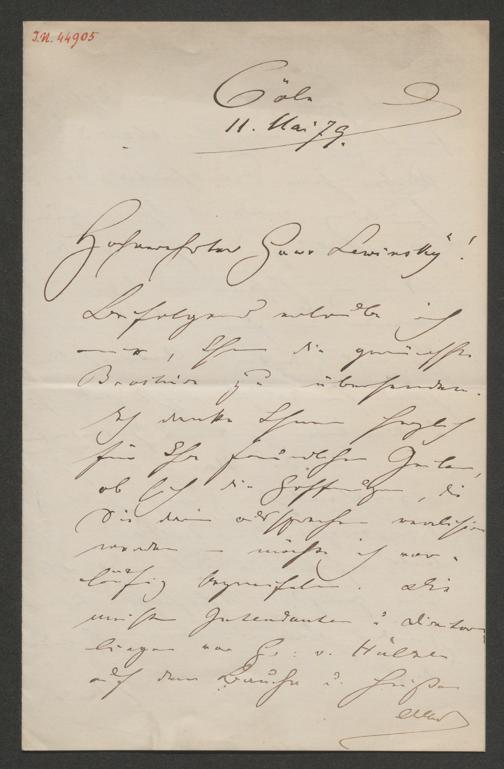 I.N. 44905
Cöln
11. Mai 79.
Hochverehrter Herr Lewinsky!
Beifolgend erlaube ich
mir, Ihnen die gewünschte
Broschüre zu übersenden.
Ich danke Ihnen herzlich
für Ihre freundlichen Zeilen,
ob sich die Hoffnungen, die
Sie darin aussprechen realisiren
werden – möchte ich vor-
läufig bezweifeln. Die
meisten Intendanten u. Direktoren
liegen vor H: v. Hülsen
auf dem Bauche u.